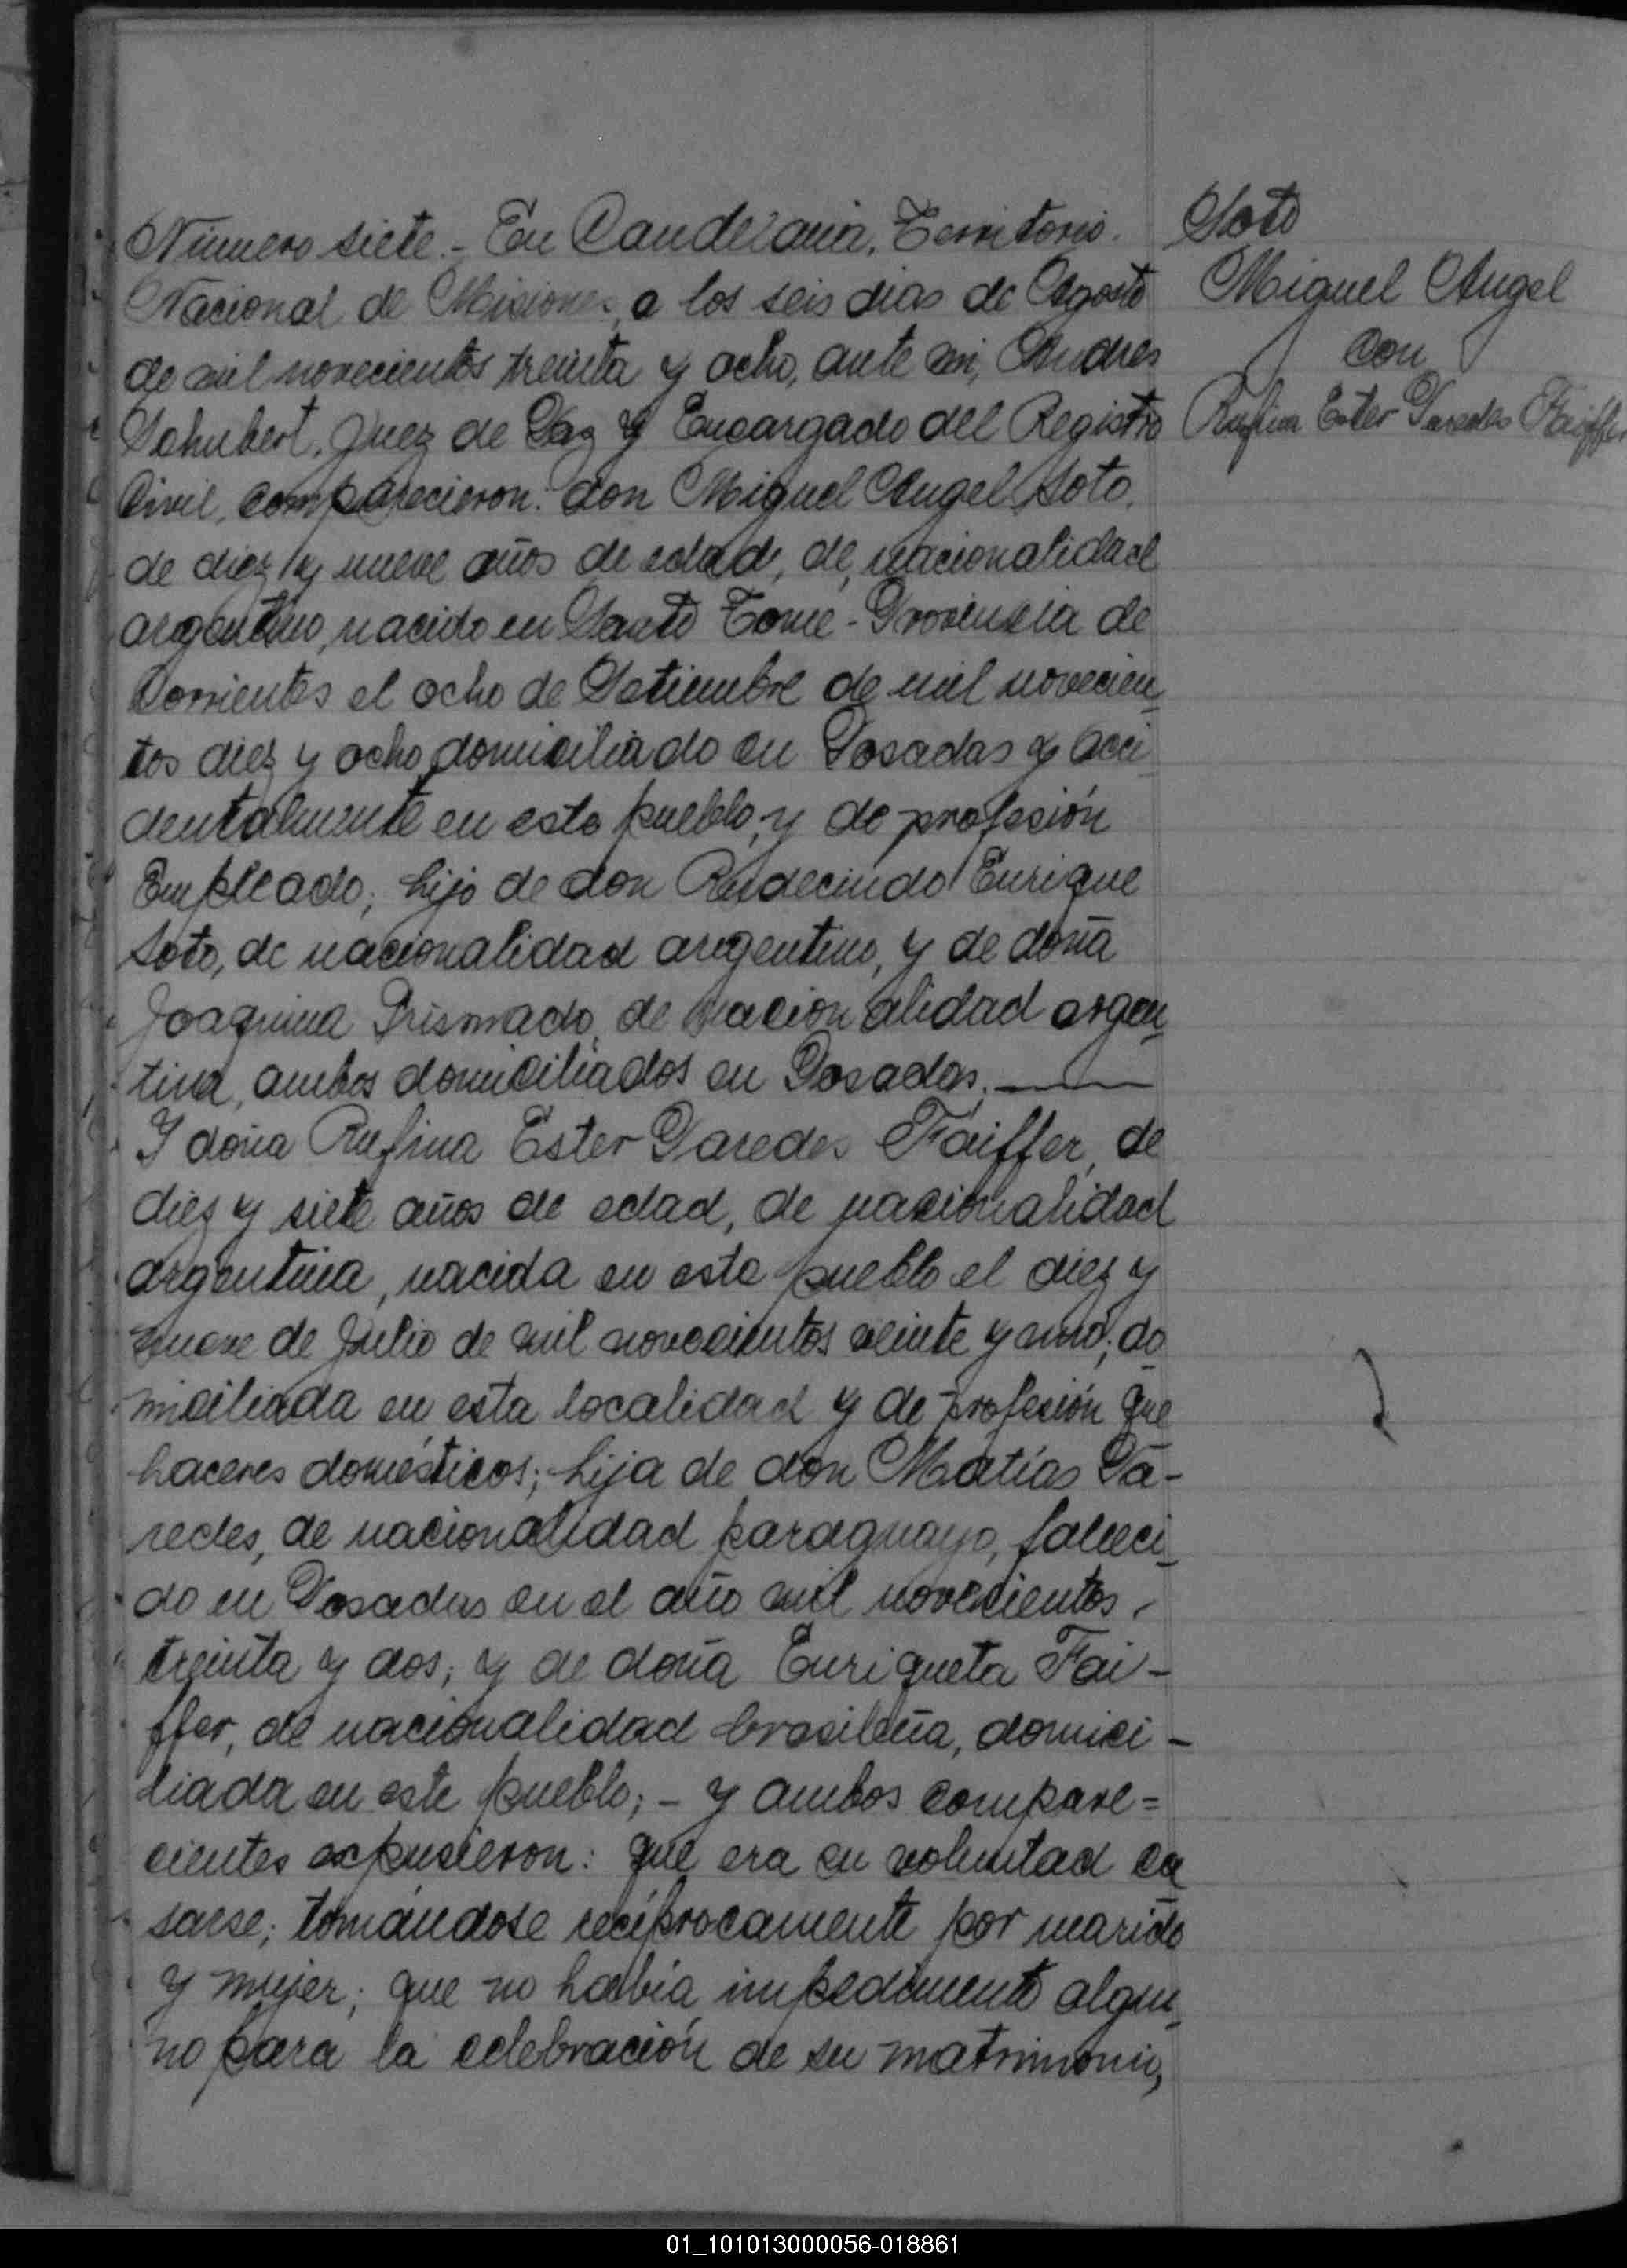 Número siete.- En Candelaria, Territorio
Nacional de Misiones, a los seis dias de Agosto
de mil novecientos treinta y ocho, ante mi, Andres
Schubert, Juez de Paz y Encargado del Registro
Civil, comparecieron: don Miguel Angel Soto,
de diez y nueve años de edad, de nacionalidad
argentino, nacido en Santo Tomé - Provincia de
Corrientes el ocho de Setiembre de mil novecien_
tos diez y ocho domiciliado en Posadas y acci_
dentalmente en este pueblo, y de profesión
Empleado; hijo de don Rudecindo Enrique
Soto, de nacionalidad argentino, y de doña
Joaquina Prismado, de nacionalidad argen_
tina, ambos domiciliados en Posadas.
Y doña Rufina Ester Paredes Faiffer, de
diez y siete años de edad, de nacionalidad
argentina, nacida en este pueblo el diez y
nueve de Julio de mil novecientos veinte y uno; do_
miciliada en esta localidad y de profesión que
haceres domésticos; hija de don Matías Pa-
redes, de nacionalidad paraguayo, falleci_
do en Posadas en el año mil novecientos
treinta y dos; y de doña Enriqueta Fai-
ffer, de nacionalidad brasileña, domici-
liada en este pueblo; - y ambos compare=
cientes expusieron: que era su voluntad ca_
sarse; tomándose recíprocamente por marido
y mujer; que no había impedimento algu_
no para la celebración de su matrimonio,
Soto
Miguel Angel
con
Rufina Ester Paredes Faiffer
01_101013000056-018861